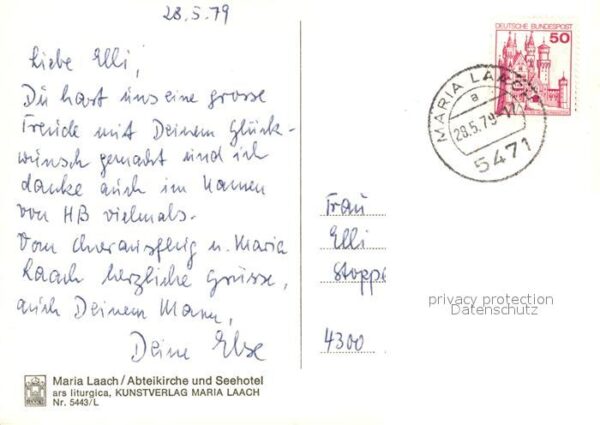 28.5.79
Liebe Elli,
Du hast uns eine grosse
Freude mit Deinem Glück-
wunsch gemacht und ich
danke auch im Namen
von HB vielmals.
Vom n. Maria
Laach herzliche Grüsse,
auch Deinem Mann,
Deine Else
Maria Laach / Abteikirche und Seehotel
ars liturgica, KUNSTVERLAG MARIA LAACH
Nr. 5443/L
DEUTSCHE BUNDESPOST
50
MARIA LAACH
a
28.5.79-17
5471
Frau
Elli
Stoppe
4300
privacy protection
Datenschutz